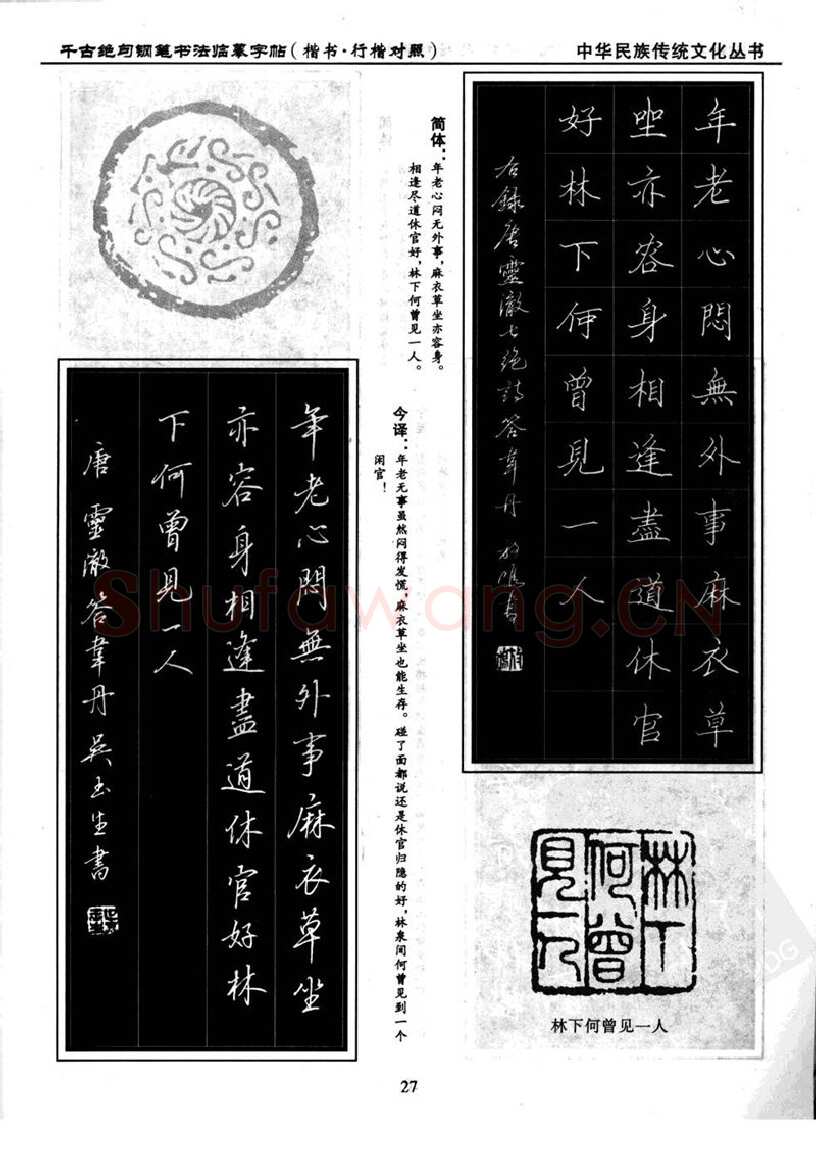 千古绝句钢笔书法临摹字帖（楷书·行楷对照）
中华民族传统文化丛书
年老心悶無外事麻衣草
坐亦容身相逢盡道休官
好林下何曾見一人
右録唐靈澈七绝詩答韋丹
简体：年老心闷无外事，麻衣草坐亦容身。
相逢尽道休官好，林下何曾见一人。
今译：年老无事虽然闷得发慌，麻衣草坐也能生存。碰了面都说还是休官归隐的好，林泉间何曾见到一个
闲官！
年老心悶無外事麻衣草坐
亦容身相逢盡道休官好林
下何曾見一人
唐靈澈答韋丹吴玉生書
林下何曾見一人
林下何曾见一人
Shufawang.CN
27